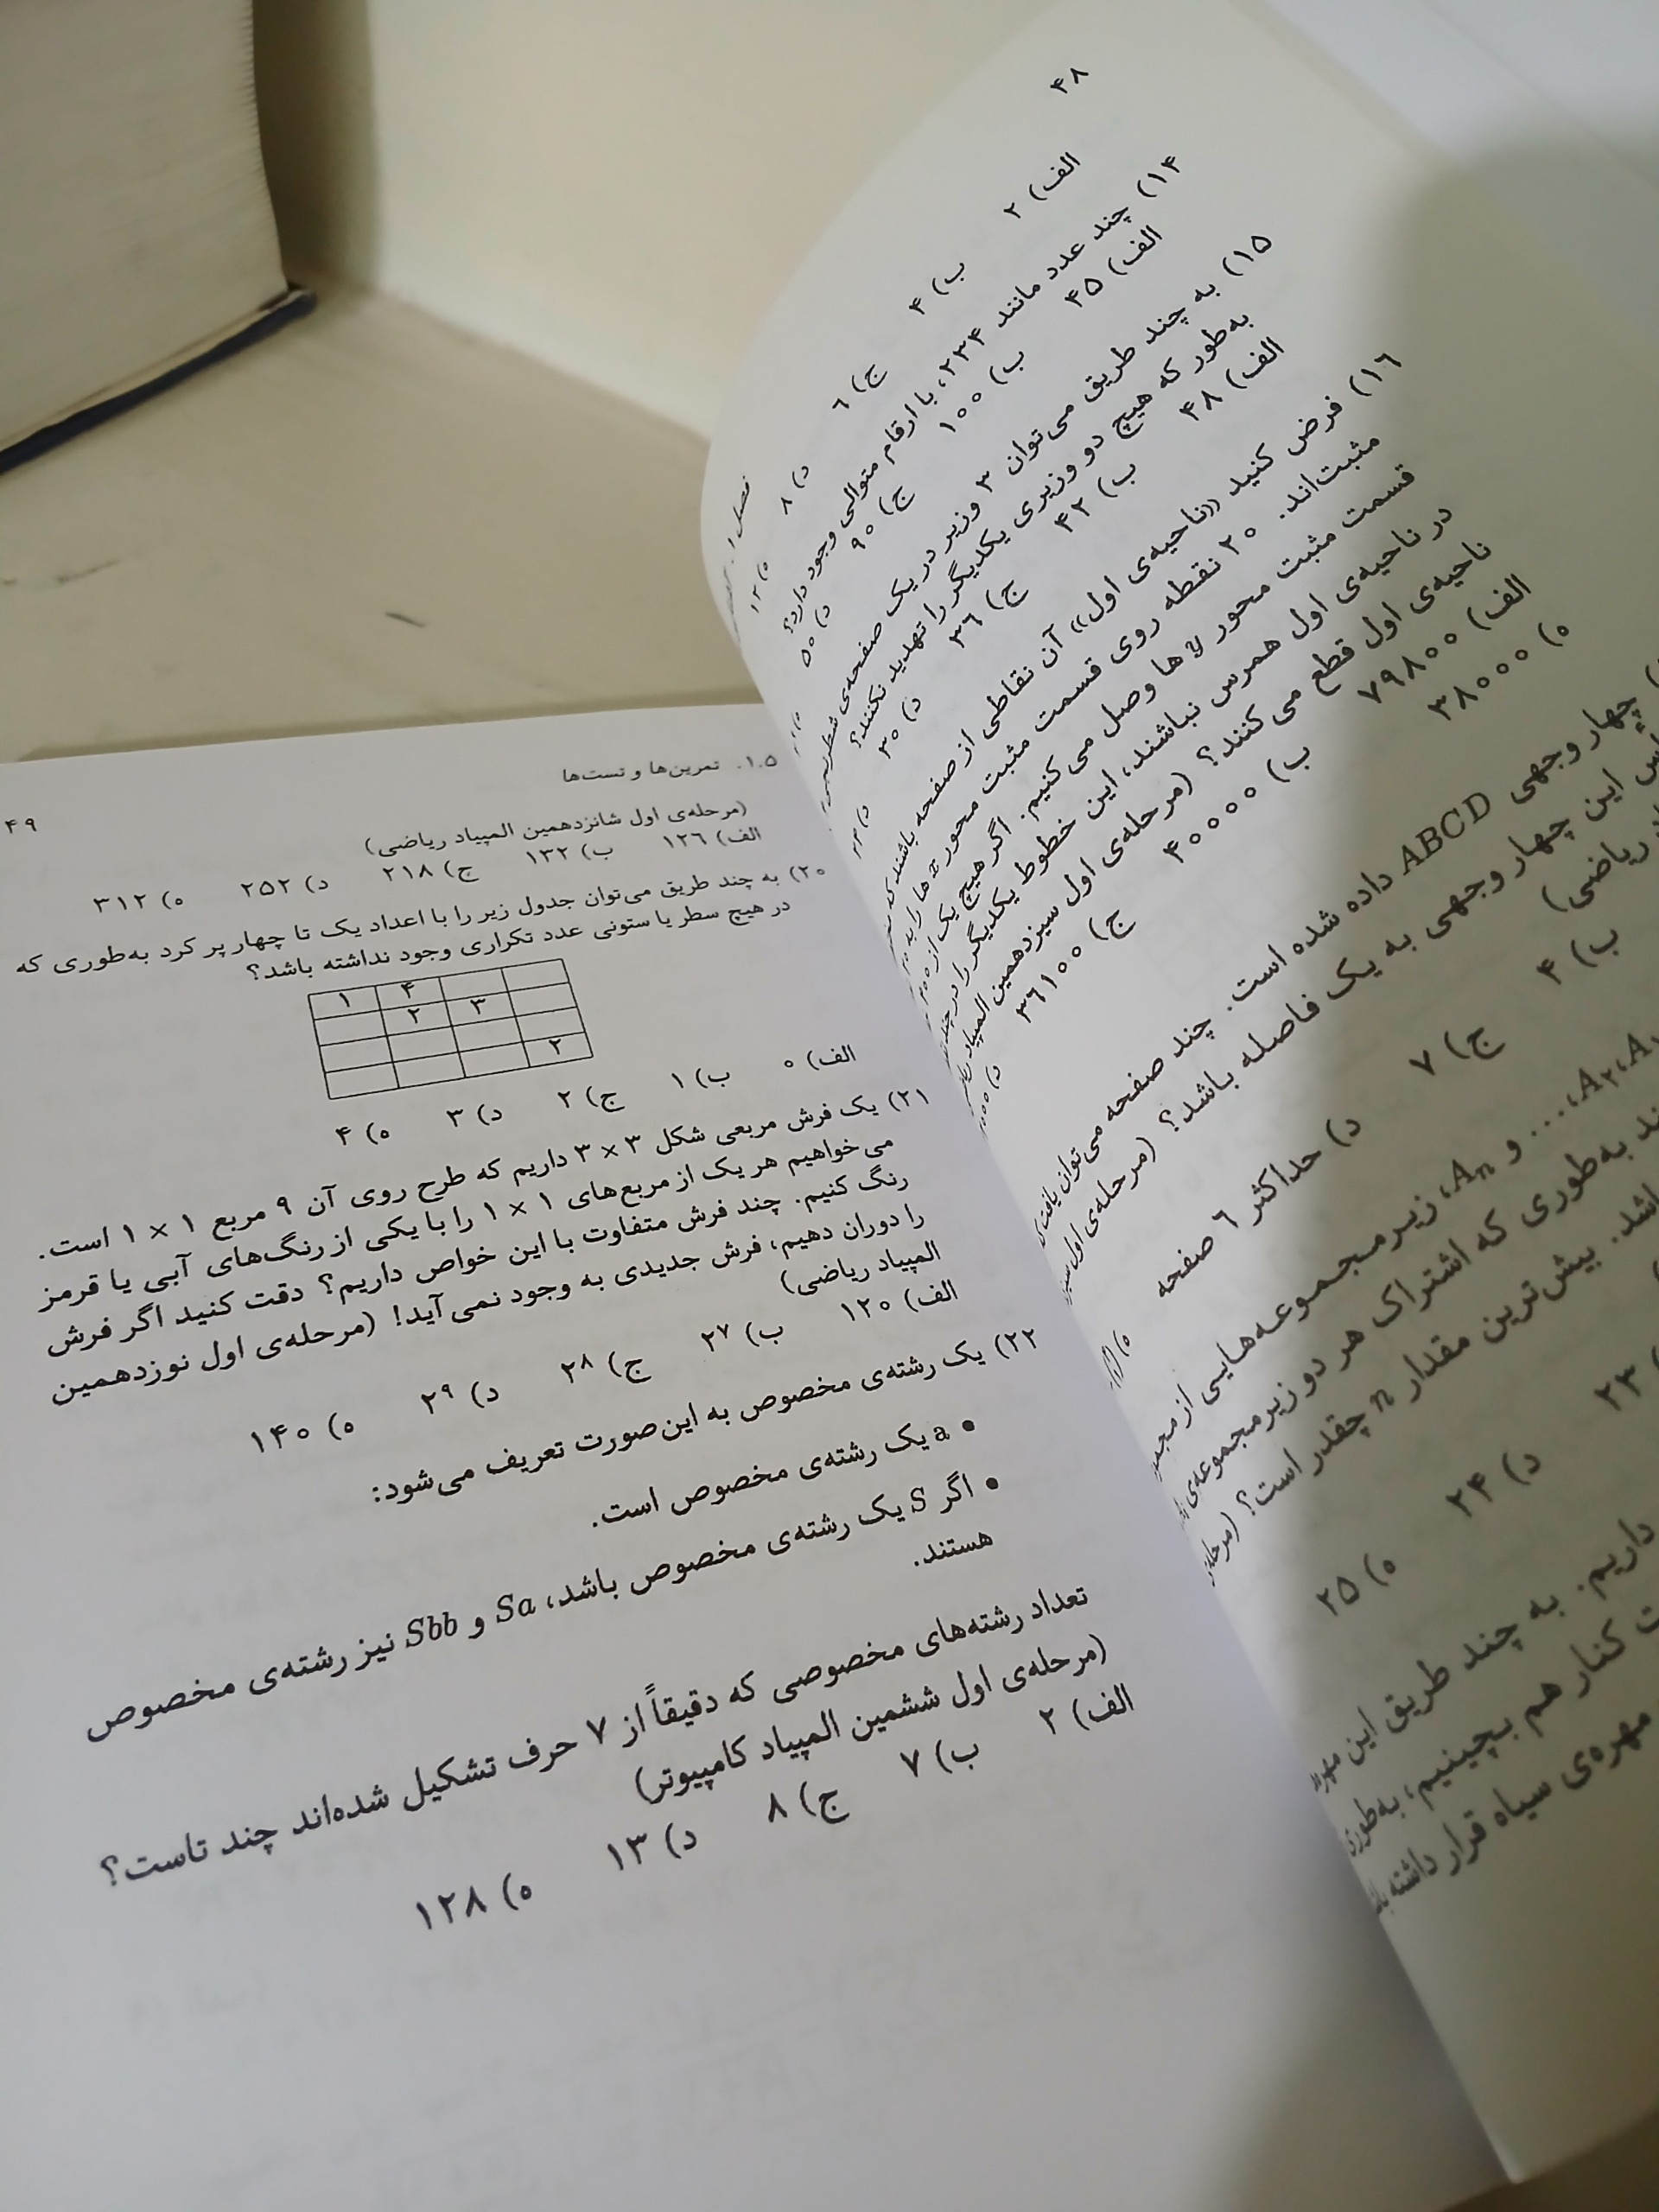 ۴۸
الف) ۲ ب) ۴ ج) ۶ د) ۸ ه) ۱۲
۱۴) چند عدد مانند ۲۳۴، با ارقام متوالی وجود دارد؟
الف) ۴۵ ب) ۱۰۰ ج) ۹۰ د) ۵۰
۱۵) به چند طریق می‌توان ۳ وزیر در یک صفحه‌ی
به‌طور که هیچ دو وزیری یکدیگر را تهدید نکنند؟
الف) ۴۸ ب) ۴۲ ج) ۳۶ د) ۳۰
۱۶) فرض کنید «ناحیه‌ی اول» آن نقاطی از صفحه باشند که
مثبت‌اند. ۲۰ نقطه روی قسمت مثبت محور x ها را به
قسمت مثبت محور y ها وصل می‌کنیم. اگر هیچ یک از
در ناحیه‌ی اول همرس نباشند، این خطوط یکدیگر را در
ناحیه‌ی اول قطع می کنند؟ (مرحله‌ی اول سیزدهمین المپیاد
الف) ۷۹۸۰۰ ب) ۴۰۰۰۰ ج) ۳۶۱۰۰
ه) ۳۸۰۰۰
چهار وجهی ABCD داده شده است. چند صفحه می‌توان یافت
این چهار وجهی به یک فاصله باشد؟ (مرحله‌ی اول
ریاضی)
ب) ۴ ج) ۷ د) حداکثر ۶ صفحه
A۲، ... و An، زیرمجموعه‌هایی از
به‌طوری که اشتراک هر دو زیرمجموعه‌ی
بیش‌ترین مقدار n چقدر است؟ (مرحله‌ی
۲۳ د) ۲۴ ه) ۲۵
داریم. به چند طریق این
کنار هم بچینیم، به‌طوری
مهره‌ی سیاه قرار داشته
۱.۵. تمرین‌ها و تست‌ها ۴۹
(مرحله‌ی اول شانزدهمین المپیاد ریاضی)
الف) ۱۲۶ ب) ۱۳۲ ج) ۲۱۸ د) ۲۵۲ ه) ۳۱۲
۲۰) به چند طریق می‌توان جدول زیر را با اعداد یک تا چهار پر کرد به‌طوری که
در هیچ سطر یا ستونی عدد تکراری وجود نداشته باشد؟
۱ ۴
۲ ۳
۲
الف) ۰ ب) ۱ ج) ۲ د) ۳ ه) ۴
۲۱) یک فرش مربعی شکل ۳ × ۳ داریم که طرح روی آن ۹ مربع ۱ × ۱ است.
می‌خواهیم هر یک از مربع‌های ۱ × ۱ را با یکی از رنگ‌های آبی یا قرمز
رنگ کنیم. چند فرش متفاوت با این خواص داریم؟ دقت کنید اگر فرش
را دوران دهیم، فرش جدیدی به وجود نمی‌آید! (مرحله‌ی اول نوزدهمین
المپیاد ریاضی)
الف) ۱۲۰ ب) ۲۷ ج) ۲۸ د) ۲۹ ه) ۱۴۰
۲۲) یک رشته‌ی مخصوص به این‌صورت تعریف می‌شود:
• a یک رشته‌ی مخصوص است.
• اگر S یک رشته‌ی مخصوص باشد، Sa و Sbb نیز رشته‌ی مخصوص
هستند.
تعداد رشته‌های مخصوصی که دقیقاً از ۷ حرف تشکیل شده‌اند چند تاست؟
(مرحله‌ی اول ششمین المپیاد کامپیوتر)
الف) ۲ ب) ۷ ج) ۸ د) ۱۳ ه) ۱۲۸